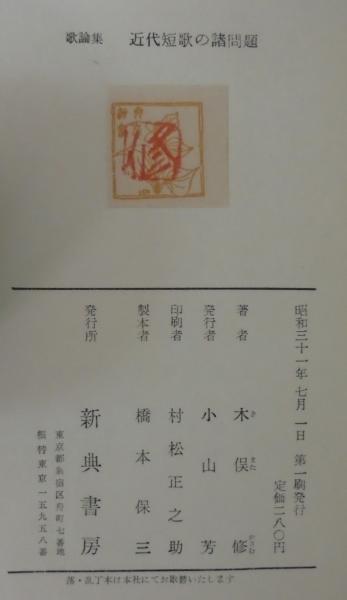 歌論集 近代短歌の諸問題
修
昭和三十一年七月一日 第一刷発行
定価二八〇円
著者 木俣修
発行者 小山芳
印刷者 村松正之助
製本者 橋本保三
発行所 新典書房
東京都新宿区舟町七番地
振替東京一五九五八番
落・乱丁本は本社にてお取替いたします